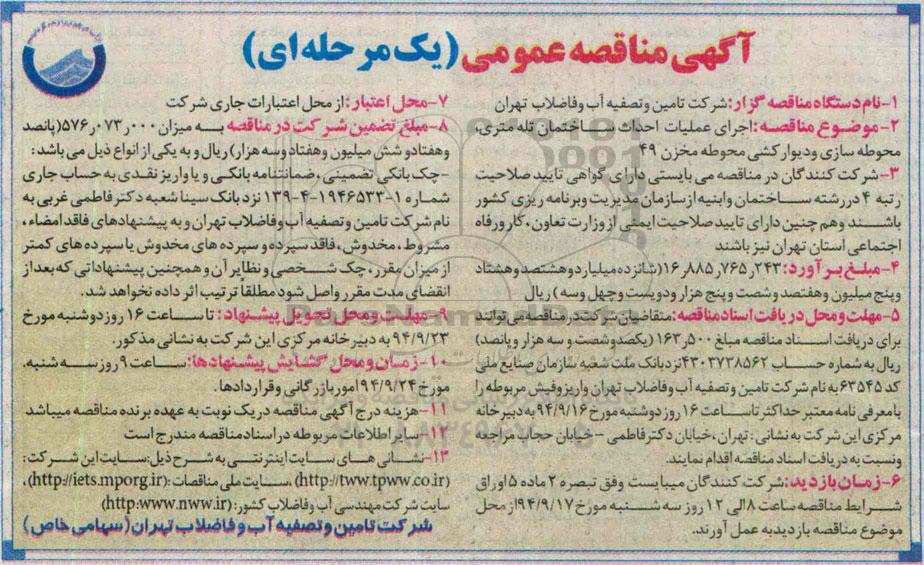 آگهی مناقصه عمومی (یک مرحله‌ای)
۱-نام دستگاه مناقصه گزار: شرکت تامین وتصفیه آب وفاضلاب تهران
۲-موضوع مناقصه: اجرای عملیات احداث ساختمان تله متری،
محوطه سازی ودیوار کشی محوطه مخزن ۴۹
۳-شرکت کنندگان در مناقصه می بایستی دارای گواهی تایید صلاحیت
رتبه ۴ دررشته ساختمان وابنیه ازسازمان مدیریت وبرنامه ریزی کشور
باشند وهم چنین دارای تایید صلاحیت ایمنی ازوزارت تعاون، کار ورفاه
اجتماعی استان تهران نیز باشند
۴-مبلغ برآورد: ۱۶٫۸۸۵٫۷۶۵٫۲۴۳ (شانزده میلیارد وهشتصد وهشتاد
وپنج میلیون وهفتصد وشصت و پنج هزار ودویست وچهل وسه) ریال
۵-مهلت ومحل دریافت اسناد مناقصه: متقاضیان شرکت در مناقصه می توانند
برای دریافت اسناد مناقصه مبلغ ۱۶۳٫۵۰۰ (یکصدوشصت و سه هزار وپانصد)
ریال به شماره حساب ۴۳۰۳۷۳۸۵۶۲ نزد بانک ملت شعبه سازمان صنایع ملی
کد ۶۳۵۴۵ به نام شرکت تامین و تصفیه آب وفاضلاب تهران واریزوفیش مربوطه را
بامعرفی نامه معتبر حداکثر تاساعت ۱۶ روز دوشنبه مورخ ۹۴/۹/۱۶ به دبیرخانه
مرکزی این شرکت به نشانی: تهران، خیابان دکترفاطمی - خیابان حجاب مراجعه
ونسبت به دریافت اسناد مناقصه اقدام نمایند.
۶-زمان بازدید: شرکت کنندگان میبایست وفق تبصره ۲ ماده ۵ اوراق
شرایط مناقصه ساعت ۸ الی ۱۲ روز سه شنبه مورخ ۹۴/۹/۱۷ از محل
موضوع مناقصه بازدید به عمل آورند.
۷-محل اعتبار: از محل اعتبارات جاری شرکت
۸-مبلغ تضمین شرکت در مناقصه به میزان ۵۷۶٫۰۷۳٫۰۰۰ (پانصد
وهفتادو شش میلیون وهفتاد وسه هزار) ریال و به یکی از انواع ذیل می باشد:
-چک بانکی تضمینی، ضمانتنامه بانکی و یا واریز نقدی به حساب جاری
شماره ۱-۱۹۴۶۵۳۳-۴-۱۳۹ نزد بانک سینا شعبه دکتر فاطمی غربی به
نام شرکت تامین وتصفیه آب وفاضلاب تهران و به پیشنهادهای فاقد امضاء،
مشروط، مخدوش، فاقد سپرده و سپرده های مخدوش یا سپرده های کمتر
از میزان مقرر، چک شخصی و نظایر آن و همچنین پیشنهاداتی که بعد از
انقضای مدت مقرر واصل شود مطلقا ترتیب اثر داده نخواهد شد.
۹-مهلت ومحل تحویل پیشنهاد: تا ساعت ۱۶ روز دوشنبه مورخ
۹۴/۹/۲۳ به دبیرخانه مرکزی این شرکت به نشانی مذکور.
۱۰-زمان و محل گشایش پیشنهادها: ساعت ۹ روز سه شنبه.
مورخ ۹۴/۹/۲۴ امور بازرگانی وقراردادها.
۱۱-هزینه درج آگهی مناقصه در یک نوبت به عهده برنده مناقصه میباشد
۱۲-سایر اطلاعات مربوطه در اسناد مناقصه مندرج است
۱۳-نشانی های سایت اینترنتی به شرح ذیل: سایت این شرکت:
(http://tww.tpww.co.ir)، سایت ملی مناقصات: (http://iets.mporg.ir)،
سایت شرکت مهندسی آب وفاضلاب کشور: (http:www.nww.ir)
شرکت تامین وتصفیه آب و فاضلاب تهران (سهامی خاص)
ParsNamadData